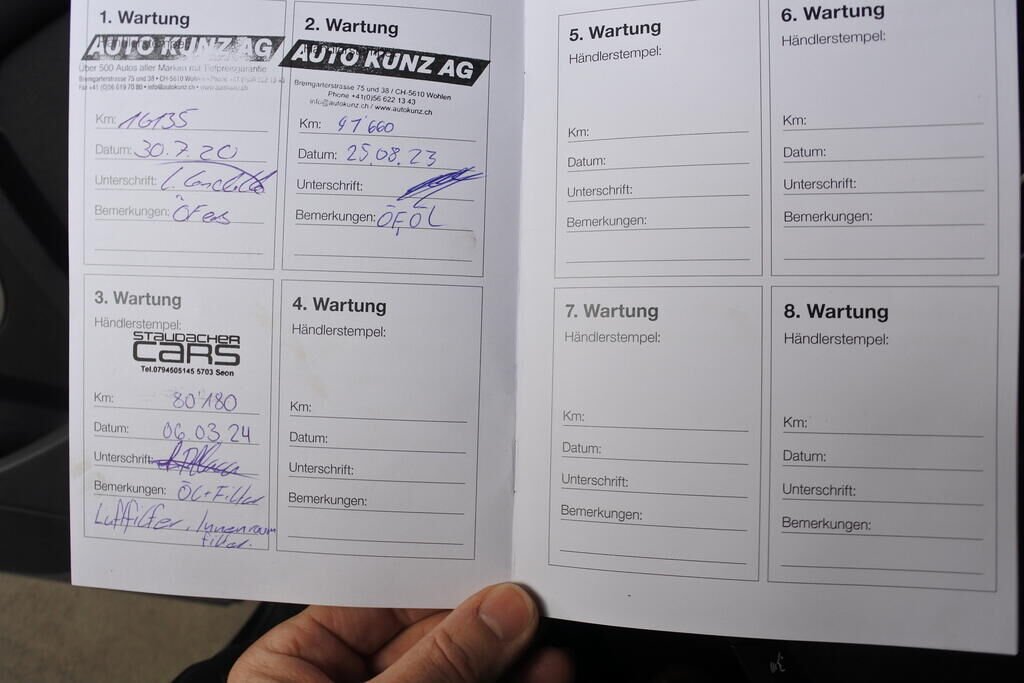 1. Wartung
AUTO KUNZ AG
Über 500 Autos aller Marken mit Tiefpreisgarantie
Bremgarterstrasse 75 und 38 • CH-5610 Wohlen • Phone +41 (0)56 622 13 43
Fax +41 (0)56 619 70 80 • info@autokunz.ch • www.autokunz.ch
Km: 16135
Datum: 30.7.20
Unterschrift:
Bemerkungen:
2. Wartung
AUTO KUNZ AG
Bremgarterstrasse 75 und 38 / CH-5610 Wohlen
Phone +41(0)56 622 13 43
info@autokunz.ch / www.autokunz.ch
Km: 41'660
Datum: 25.08.23
Unterschrift:
Bemerkungen: ÖF, ÖL
3. Wartung
Händlerstempel:
STAUDACHER
CARS
Tel.0794505145 5703 Seon
Km: 80'180
Datum: 06.03.24
Unterschrift:
Bemerkungen: ÖL+Filter
Luftfilter, Innenraum
filter.
4. Wartung
Händlerstempel:
Km:
Datum:
Unterschrift:
Bemerkungen:
5. Wartung
Händlerstempel:
Km:
Datum:
Unterschrift:
Bemerkungen:
6. Wartung
Händlerstempel:
Km:
Datum:
Unterschrift:
Bemerkungen:
7. Wartung
Händlerstempel:
Km:
Datum:
Unterschrift:
Bemerkungen:
8. Wartung
Händlerstempel:
Km:
Datum:
Unterschrift:
Bemerkungen: